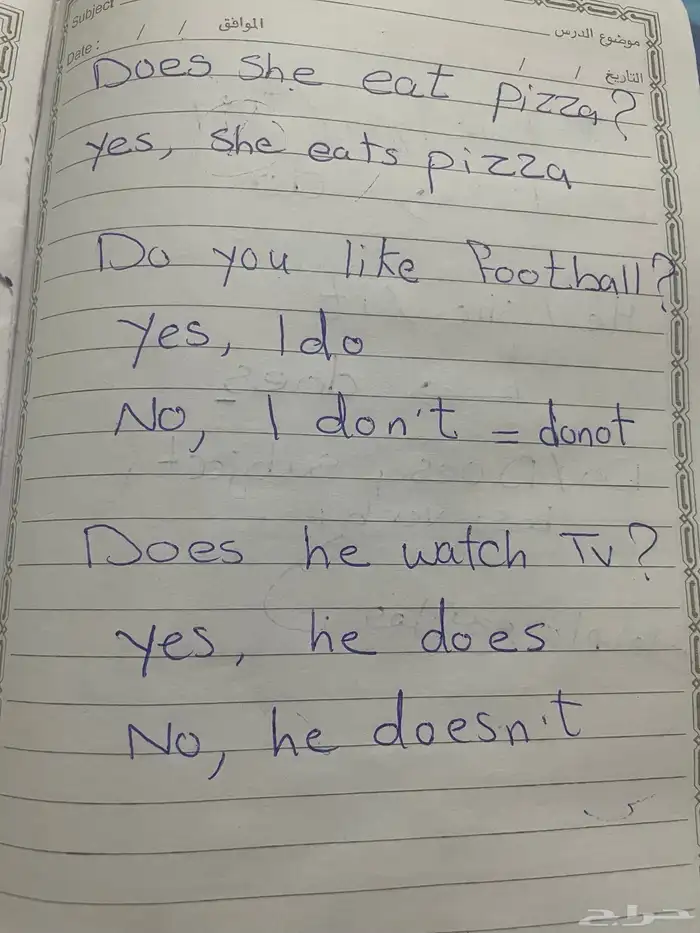 Subject
موضوع الدرس
الموافق / /
Date :
التاريخ / /
Does she eat pizza?
yes, she eats pizza
Do you like Football?
Yes, I do
No, I don't = donot
Does he watch TV?
yes, he does.
No, he doesn't
حراج